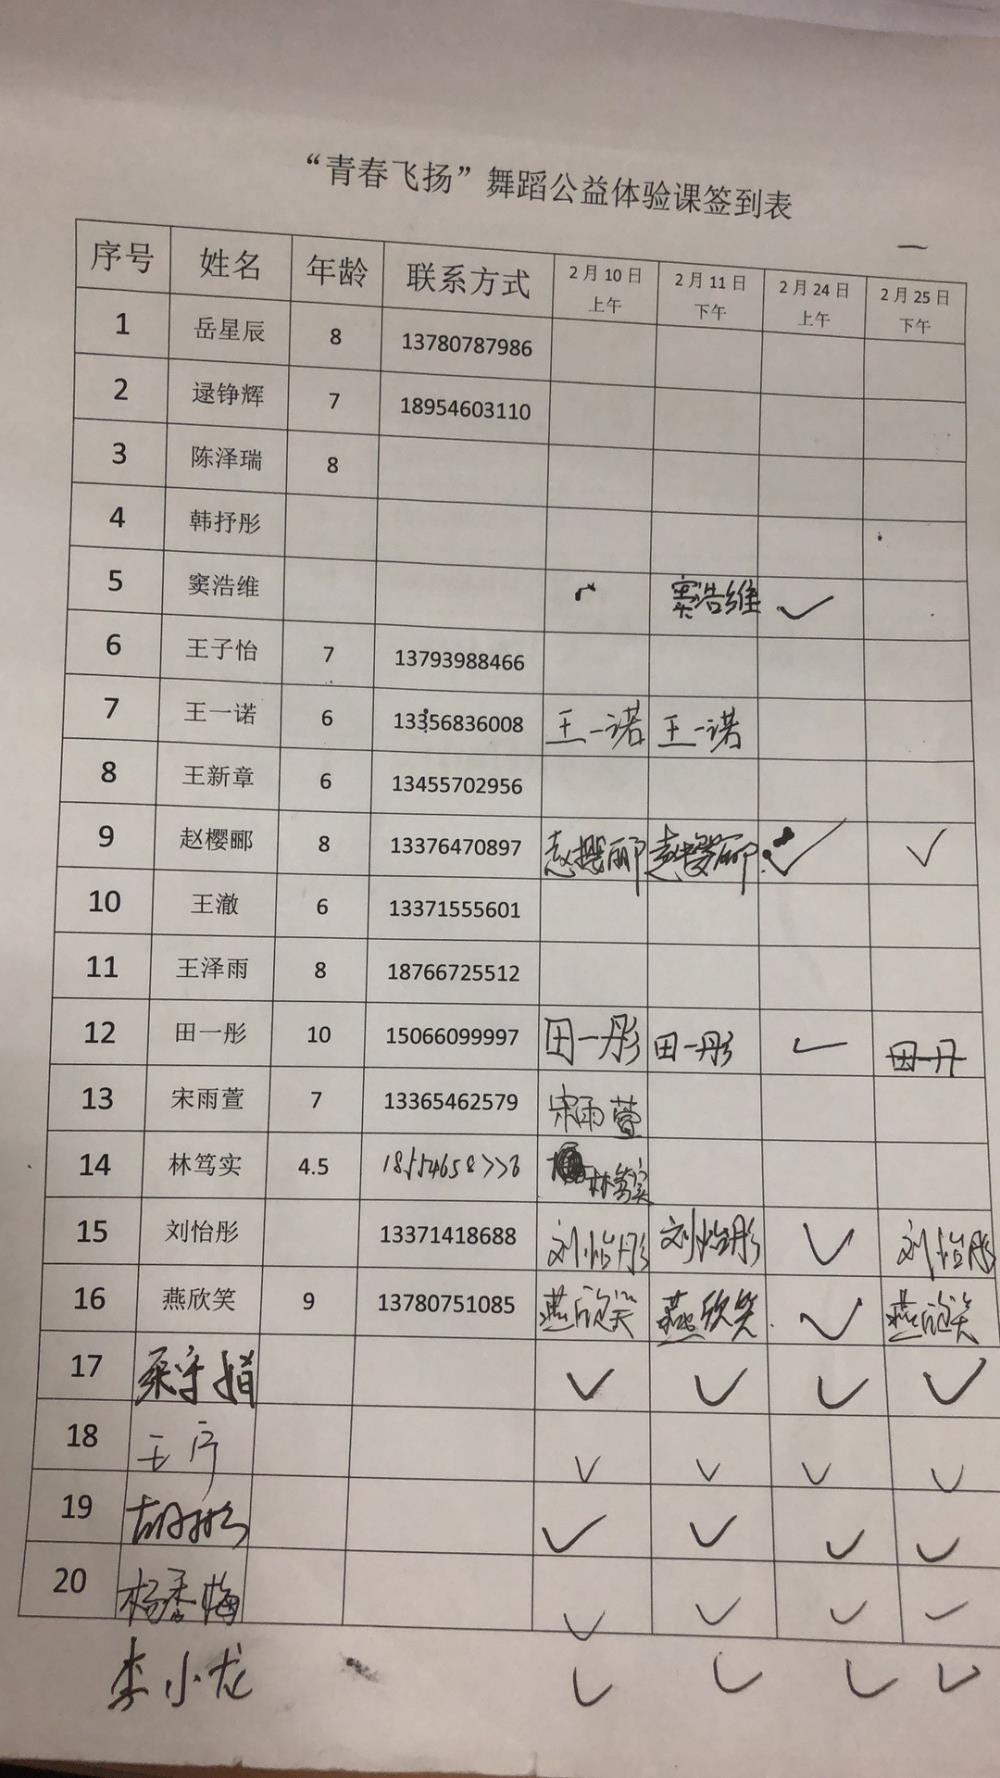 “青春飞扬”舞蹈公益体验课签到表
序号 姓名 年龄 联系方式 2月10日上午 2月11日下午 2月24日上午 2月25日下午
1 岳星辰 8 13780787986
2 逯铮辉 7 18954603110
3 陈泽瑞 8
4 韩抒彤
5 窦浩维 窦浩维 ✓
6 王子怡 7 13793988466
7 王一诺 6 13356836008 王一诺 王一诺
8 王新章 6 13455702956
9 赵樱郦 8 13376470897 赵樱郦 赵樱郦 ✓ ✓
10 王澈 6 13371555601
11 王泽雨 8 18766725512
12 田一彤 10 15066099997 田一彤 田一彤 ✓ 田一丹
13 宋雨萱 7 13365462579 宋雨萱
14 林笃实 4.5 林笃实
15 刘怡彤 13371418688 刘怡彤 刘怡彤 ✓ 刘怡彤
16 燕欣笑 9 13780751085 燕欣笑 燕欣笑 ✓ 燕欣笑
17 ✓ ✓ ✓ ✓
18 ✓ ✓ ✓ ✓
19 ✓ ✓ ✓ ✓
20 杨秀梅 ✓ ✓ ✓ ✓
李小龙 ✓ ✓ ✓ ✓